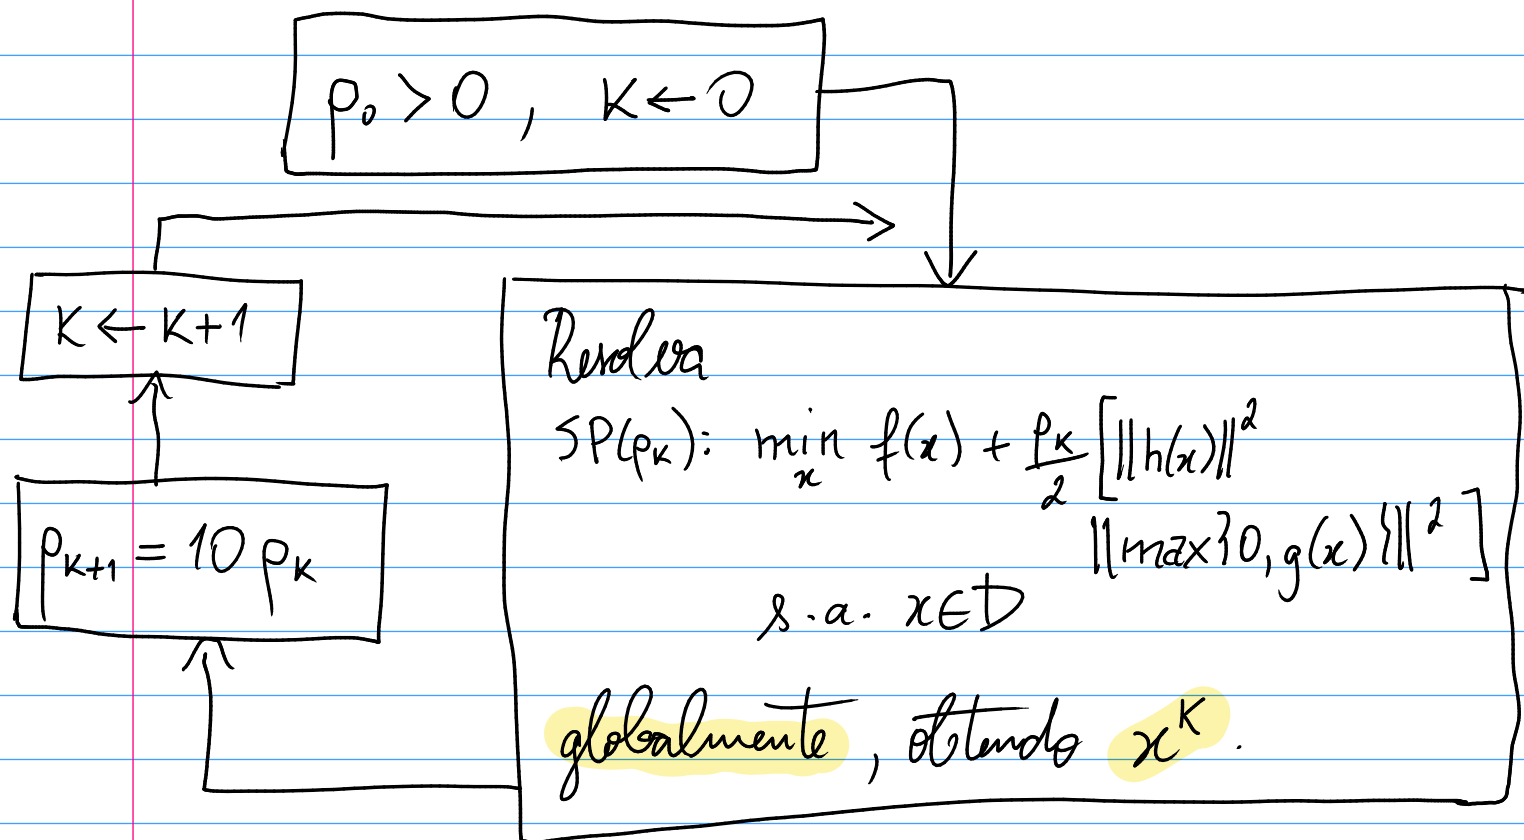 ρ₀ > 0 , K ← 0
K ← K+1
ρ_{K+1} = 10 ρ_K
Resolva
SP(ρ_K): min_x f(x) + ρ_K/2 [ ||h(x)||²
||max{0, g(x)}||² ]
s.a. x ∈ D
globalmente, obtendo x^K.